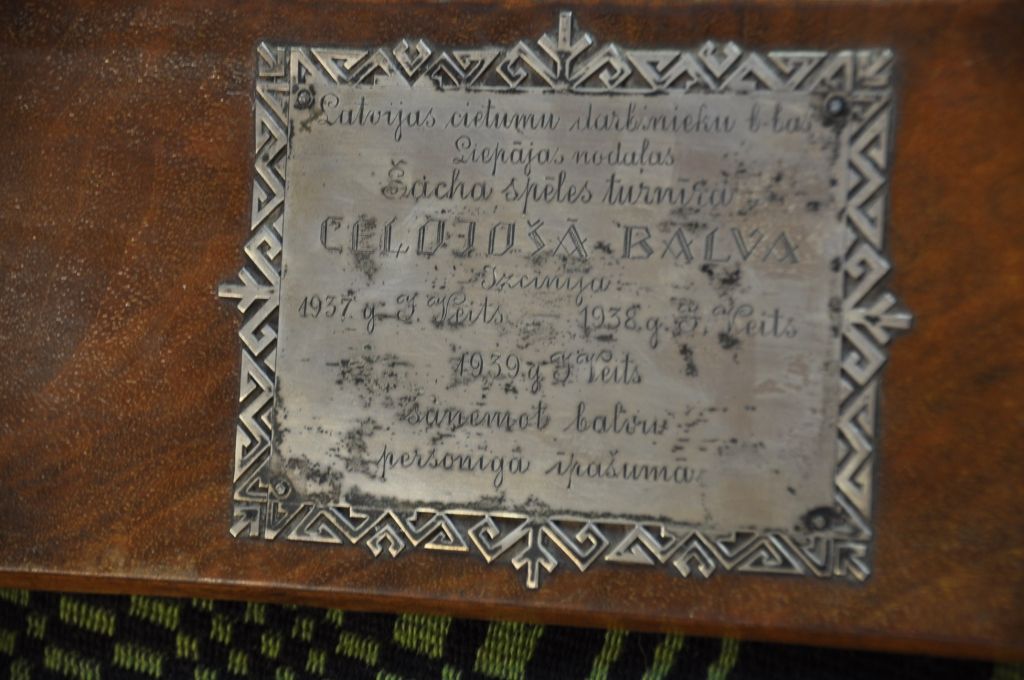 Latvijas cietumu darb.nieku b-bas
Liepājas nodaļas
Šacha spēles turnīra
CEĻOJOŠĀ BALVA
Izcīnīja
1937. g. J. Veits 1938. g. J. Veits
1939. g. J. Veits
saņemot balvu
personīgā īpašumā